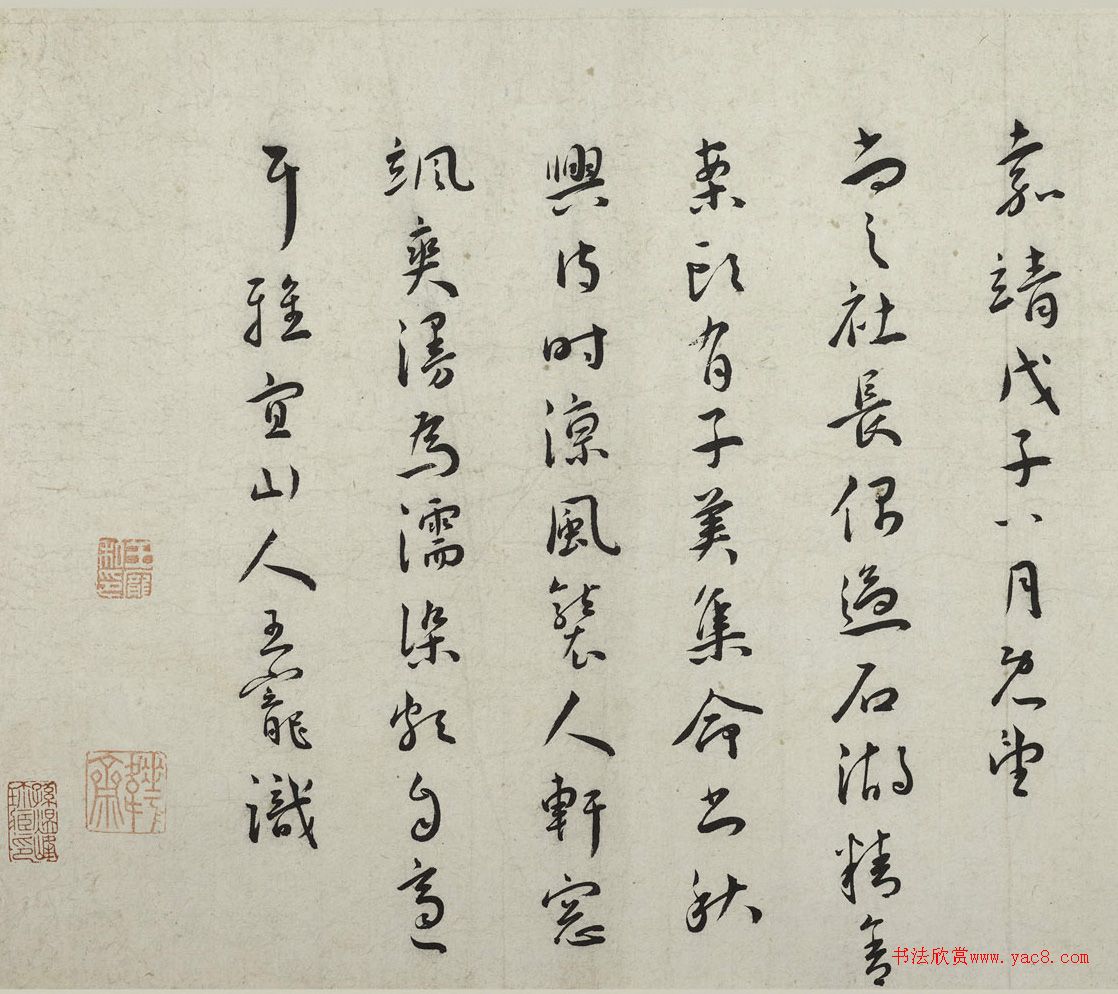 嘉靖戊子八月既望
尚之社長偶過石湖精舍
案頭有子美集命書秋
興詩時涼風襲人軒窓
颯爽漫為濡染頗自適
耳雅宜山人王寵識
书法欣赏www.yac8.com